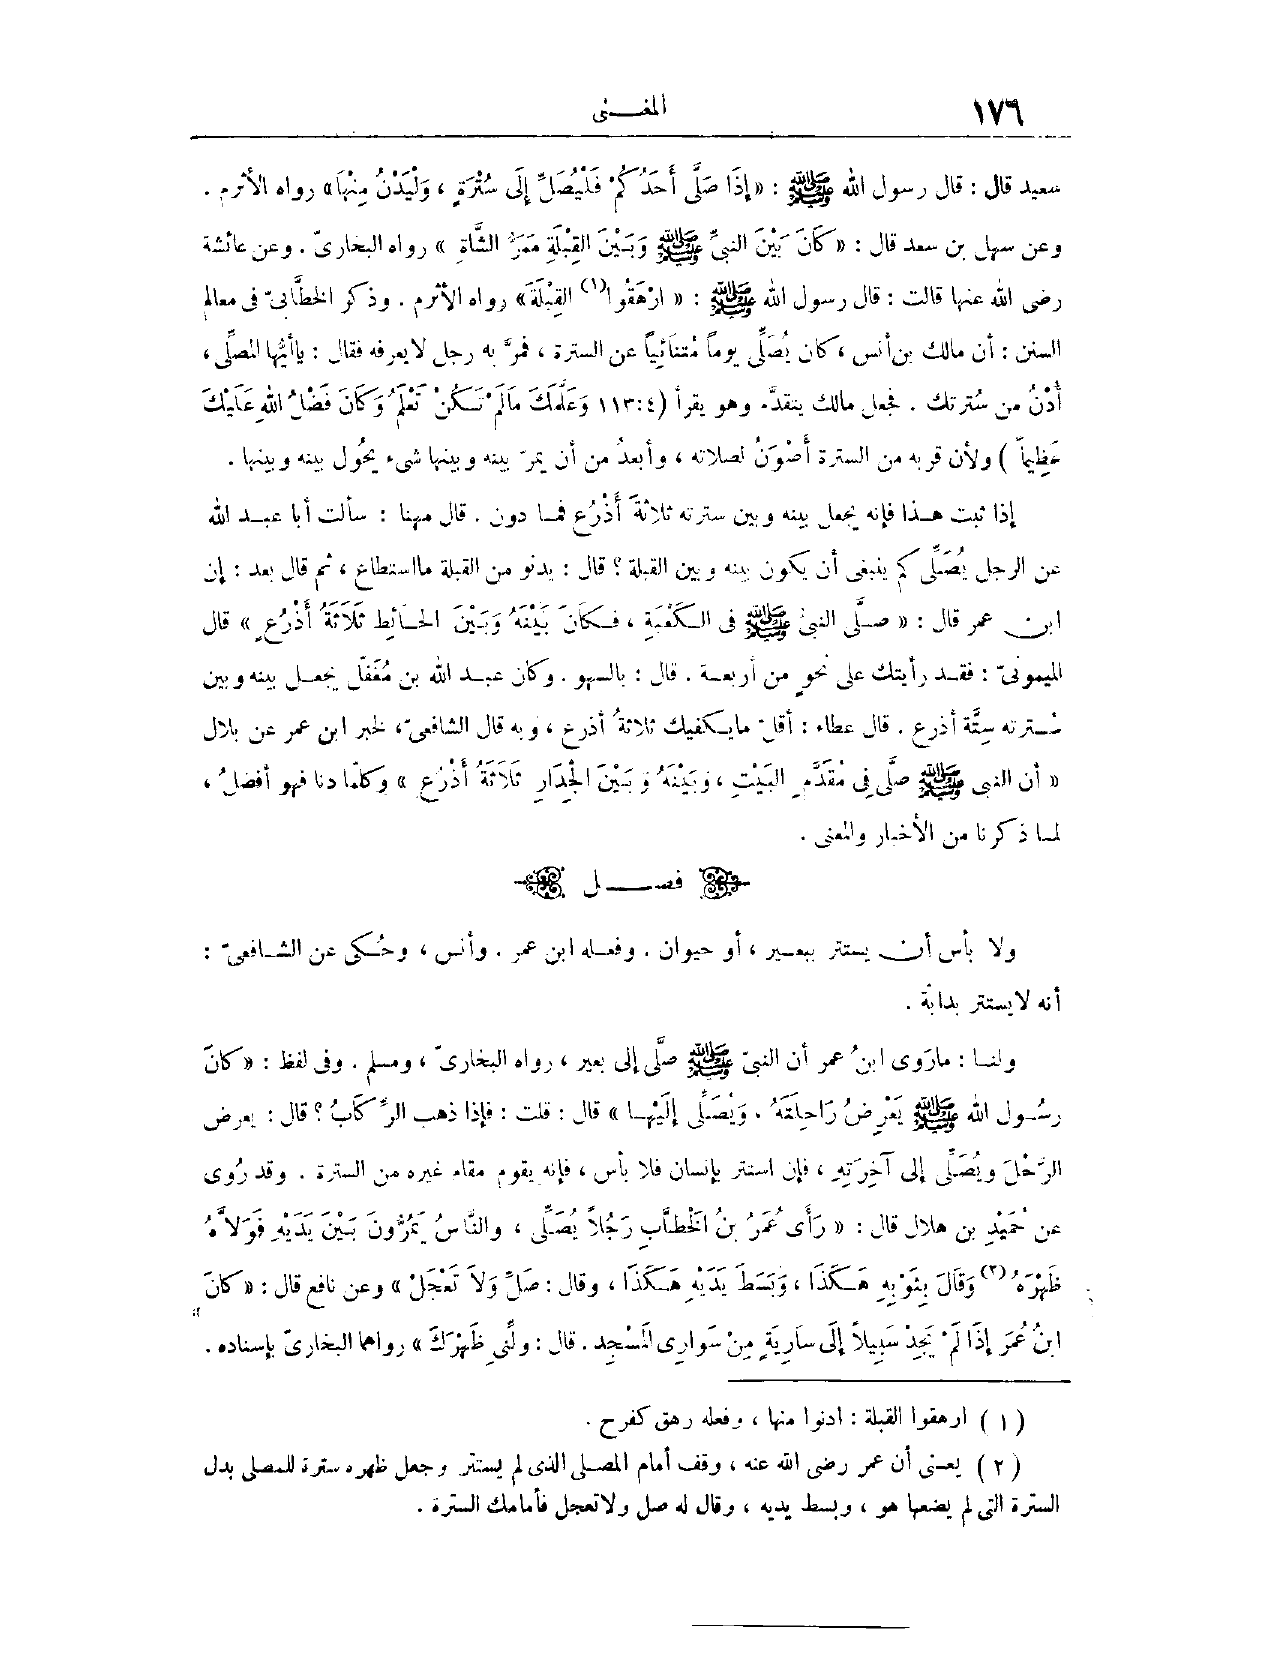 ١٧٦
المغـــنى
سعيد قال : قال رسول الله ﷺ : «إِذَا صَلَّى أَحَدُكُمْ فَلْيُصَلِّ إِلَى سُتْرَةٍ ، وَلْيَدْنُ مِنْهَا» رواه الأثرم .
وعن سهل بن سعد قال : « كَانَ بَيْنَ النبيِّ ﷺ وَبَيْنَ القِبْلَةِ مَمَرُّ الشَّاةِ » رواه البخارىّ . وعن عائشة
رضى الله عنها قالت : قال رسول الله ﷺ : « ارْهَقُوا(١) القِبْلَةَ» رواه الأثرم . وذكر الخطَّابىّ فى معالم
السنن : أن مالك بن أنس ، كان يُصَلِّى يوماً مُتنَائِياً عن السترة ، فمرَّ به رجل لا يعرفه فقال : ياأيُّها المصلِّى ،
أُدْنُ من سُترتك . فجعل مالك يتقدَّم وهو يقرأ (٤ : ١١٣ وَعَلَّمَكَ مَالَمْ تَكُنْ تَعْلَمُ وَكَانَ فَضْلُ اللهِ عَلَيْكَ
عَظِيماً ) ولأن قربه من السترة أَصْوَنُ لصلاته ، وأبعدُ من أن يمرّ بينه وبينها شىء يحُول بينه وبينها .
إذا ثبت هـذا فإنه يجعل بينه وبين سترته ثلاثةَ أَذْرُع فمـا دون . قال مهنا : سألت أبا عبـد الله
عن الرجل يُصَلِّى كم ينبغى أن يكون بينه وبين القبلة ؟ قال : يدنو من القبلة مااستطاع ، ثم قال بعد : إن
ابن عمر قال : « صـلَّى النبىُّ ﷺ فى الـكَعْبَةِ ، فـكَانَ بَيْنَهُ وَبَيْنَ الحَـائِطِ ثَلَاثَةُ أَذْرُعٍ » قال
الميمونىّ : فقـد رأيتك على نحوٍ من أربعـة . قال : بالسهو . وكان عبـد الله بن مُغَفّل يجعـل بينه وبين
سُـترته سِتَّة أذرع . قال عطاء : أقلّ مايـكفيك ثلاثةُ أذرع ، وبه قال الشافعىّ ، لخبر ابن عمر عن بلال
« أن النبى ﷺ صلَّى فِى مُقَدَّمِ البَيْتِ ، وَبَيْنَهُ وَبَيْنَ الْجِدَارِ ثَلَاثَةُ أَذْرُعٍ » وكلّما دنا فهو أفضلُ ،
لمـا ذكرنا من الأخبار والمعنى .
فصـــــل
ولا بأس أن يستتر ببعـير ، أو حيوان . وفعـله ابن عمر . وأنس ، وحُـكى عن الشـافعىّ :
أنه لا يستتر بدابةٍ .
ولنـا : مارَوى ابنُ عمر أن النبىّ ﷺ صلَّى إلى بعير ، رواه البخارىّ ، ومسلم . وفى لفظ : « كَانَ
رسُـول الله ﷺ يَعْرِضُ رَاحِلَتَهُ . وَيُصَلِّى إِلَيْهَـا » قال : قلت : فإذا ذهب الرِّكَابُ ؟ قال : يعرض
الرَّحْلَ ويُصَلِّى إلى آخِرَتِهِ ، فإن استتر بإنسان فلا بأس ، فإنه يقوم مقام غيره من السترة . وقد رُوى
عن حُمَيْدِ بن هلال قال : « رَأَى عُمَرُ بنُ الْخَطَّابِ رَجُلاً يُصَلِّى ، والنَّاسُ يَمُرُّونَ بَيْنَ يَدَيْهِ فَوَلاَّهُ
ظَهْرَهُ (٢) وَقَالَ بِثَوْبِهِ هَـكَذَا ، وَبَسَطَ يَدَيْهِ هَـكَذَا ، وقال : صَلِّ وَلاَ تَعْجَلْ » وعن نافع قال : « كَانَ
ابنُ عُمَرَ إِذَا لَمْ يَجِدْ سَبِيلاً إِلَى سَارِيَةٍ مِنْ سَوارِى الَمْسْجِدِ . قال : ولِّنِى ظَهْرَكَ » رواهما البخارىّ بإسناده .
( ١ ) ارهقوا القبلة : ادنوا منها ، وفعله رهق كفرح .
( ٢ ) يعـنى أن عمر رضى الله عنه ، وقف أمام المصـلى الذى لم يستتر وجعل ظهره سترة للمصلى بدل
السترة التى لم يضعها هو ، وبسط يديه ، وقال له صل ولا تعجل فأمامك السترة .